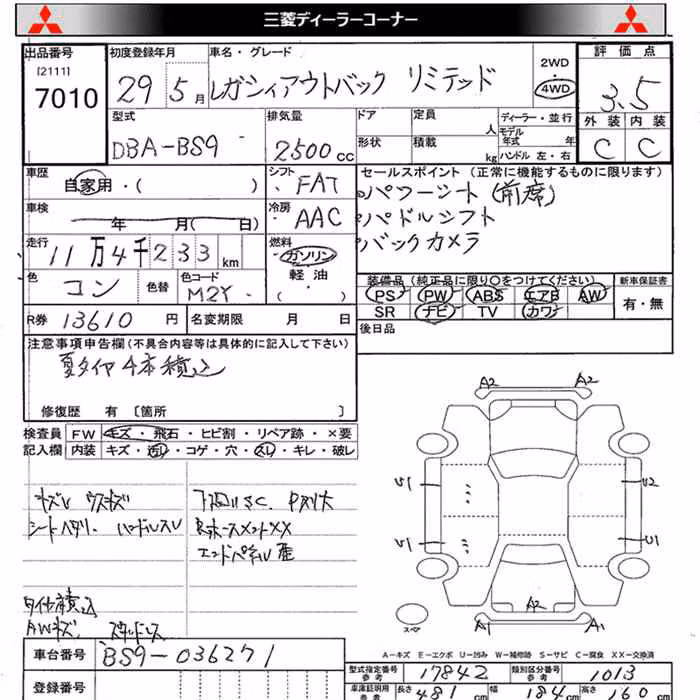 三菱ディーラーコーナー
出品番号 初度登録年月 車名・グレード 2WD 評価点
[2111] 7010 29年5月 レガシィアウトバック リミテッド 4WD 3.5
型式 排気量 ドア 定員 人 ディーラー・並行 外装 内装
DBA-BS9 2500cc 形状 積載 kg モデル年式 年 ハンドル 左・右 C C
車歴 自家用・( ) シフト FAT セールスポイント (正常に機能するものに限ります)
パワーシート(前席)
車検 年 月( 日) 冷房 AAC パドルシフト
走行 11万4千233km 燃料 ガソリン バックカメラ
軽油・( )
色 コン 色替 色コード M2Y 装備品 (純正品に限り○をつけてください) 新車保証書
PS PW ABS エアB AW 有・無
R券 13610円 名変期限 月 日 SR ナビ TV カワ
後日品
注意事項申告欄(不具合内容等は具体的に記入して下さい)
夏タイヤ4本積込
修復歴 有 〔箇所 〕
検査員 FW キズ・飛石・ヒビ割・リペア跡・×要
記入欄 内装 キズ・汚レ・コゲ・穴・スレ・キレ・破レ
A2 A2
U1 U2
U1 U1
A2
A1 A1
スペア
シートヘタリ. ハンドルスレ
タイヤ積込
AWキズ スタッドレス
A-キズ E-エクボ U-凹み W-補修跡 S-サビ C-腐食 XX-交換済
車台番号 BS9-036271
型式指定番号参考 17842 類別区分番号参考 1013
登録番号
車庫証明用参考 長さ 481cm 幅 184cm 高さ 160cm